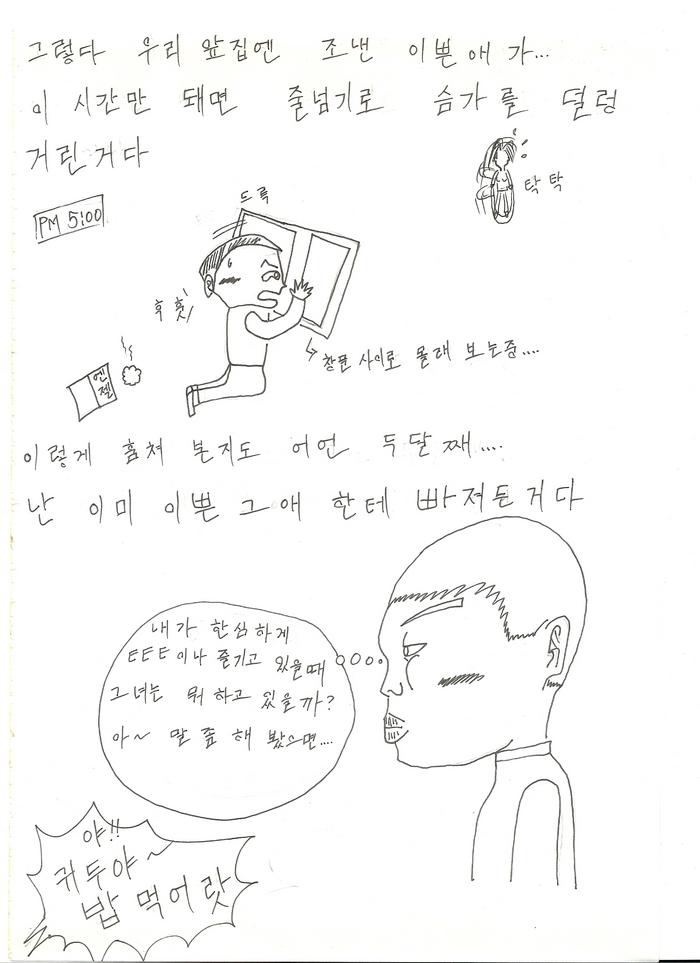 그렇다 우리 앞집엔 조낸 이쁜애가...
이 시간만 돼면 줄넘기로 슴가를 덜렁
거린거다
탁탁
PM 5:00
드륵
후훗
창문 사이로 몰래 보는중....
엔젤
이렇게 훔쳐 본지도 어언 두달째....
난 이미 이쁜 그애 한테 빠져든거다
내가 한심하게
EEE이나 즐기고 있을때
그녀는 뭐 하고 있을까?
아~ 말 좀 해 봤으면....
야!!
귀두야~
밥 먹어랏